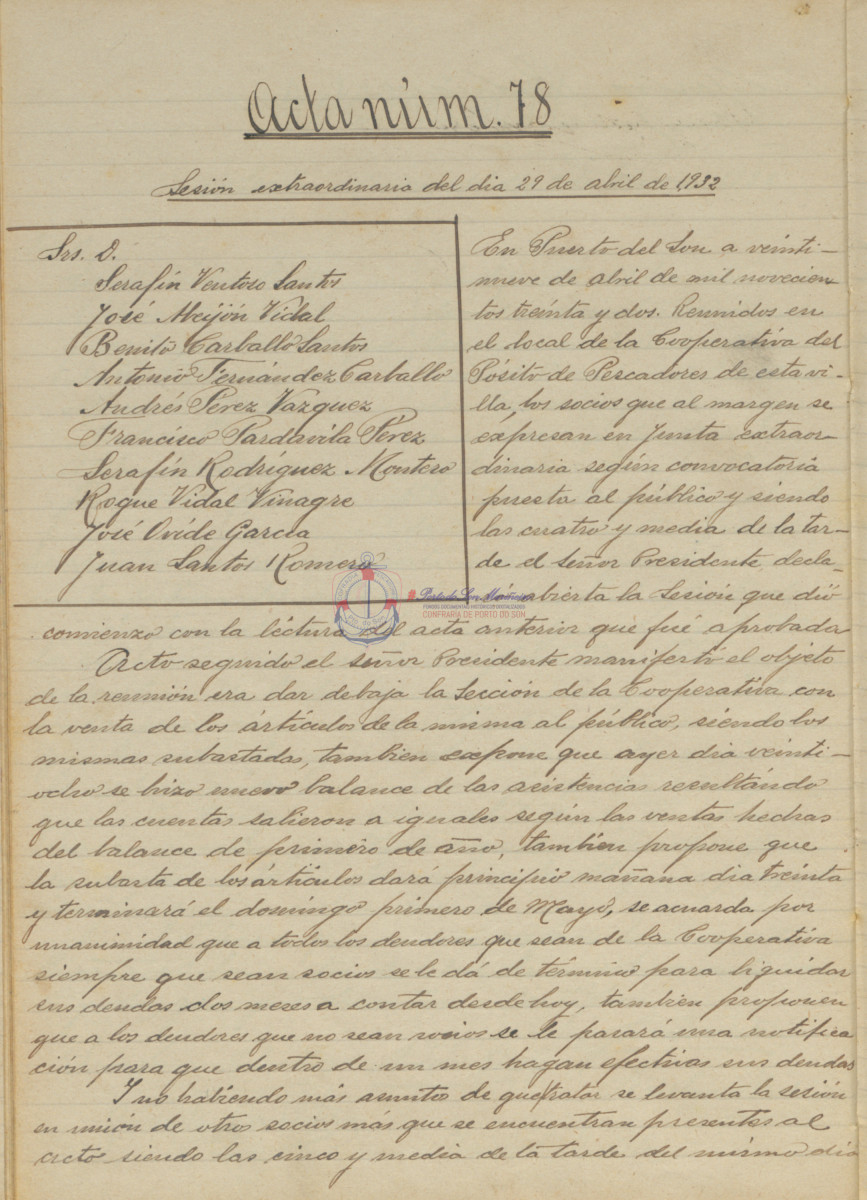 Acta núm. 78
Sesión extraordinaria del dia 29 de abril de 1932
Srs. D.
Serafín Ventoso Santos
José Meijón Vidal
Benito Carballo Santos
Antonio Fernández Carballo
Andrés Pérez Vazquez
Francisco Pardavila Pérez
Serafín Rodríguez Montero
Roque Vidal Vinagre
José Ovide García
Juan Santos Romero
En Puerto del Son a veinti-
nueve de abril de mil novecien
tos treinta y dos. Reunidos en
el local de la Cooperativa del
Pósito de Pescadores de esta vi-
lla, los socios que al margen se
expresan en Junta extraor-
dinaria según convocatoria
puesta al público y siendo
las cuatro y media de la tar-
de el señor Presidente decla-
abierta la Sesión que dió
comienzo con la léctura del acta anterior que fué aprobada
Acto seguido el señor Presidente manifestó el objeto
de la reunión era dar debaja la Sección de la Cooperativa con
la venta de los ártículos de la misma al público, siendo los
mismas subastadas, tambien expone que ayer dia veinti-
ocho se hizo nuevo balance de las existencias resultándo
que las cuentas salieron a iguales según las ventas hechas
del balance de primero de año, tambien propone que
la subasta de los ártículos dará principio mañana dia treinta
y terminará el domingo primero de Mayo, se acuarda por
unanimidad que a todos los deudores que sean de la Cooperativa
siempre que sean socios se le dá de término para liquidar
sus deudas dos meses a contar desde hoy, tambien proponen
que a los deudores que no sean socios se le pasará una notifica
ción para que dentro de un mes hagan efectivas sus deudas
Y no habiendo más asuntos de que tratar se levanta la sesión
en unión de otros socios más que se encuentran presentes al
acto siendo las cinco y media de la tarde del mismo dia
Porto do Son Mariñeiro
FONDOS DOCUMENTAIS HISTÓRICOS DIGITALIZADOS
CONFRARÍA DE PORTO DO SON